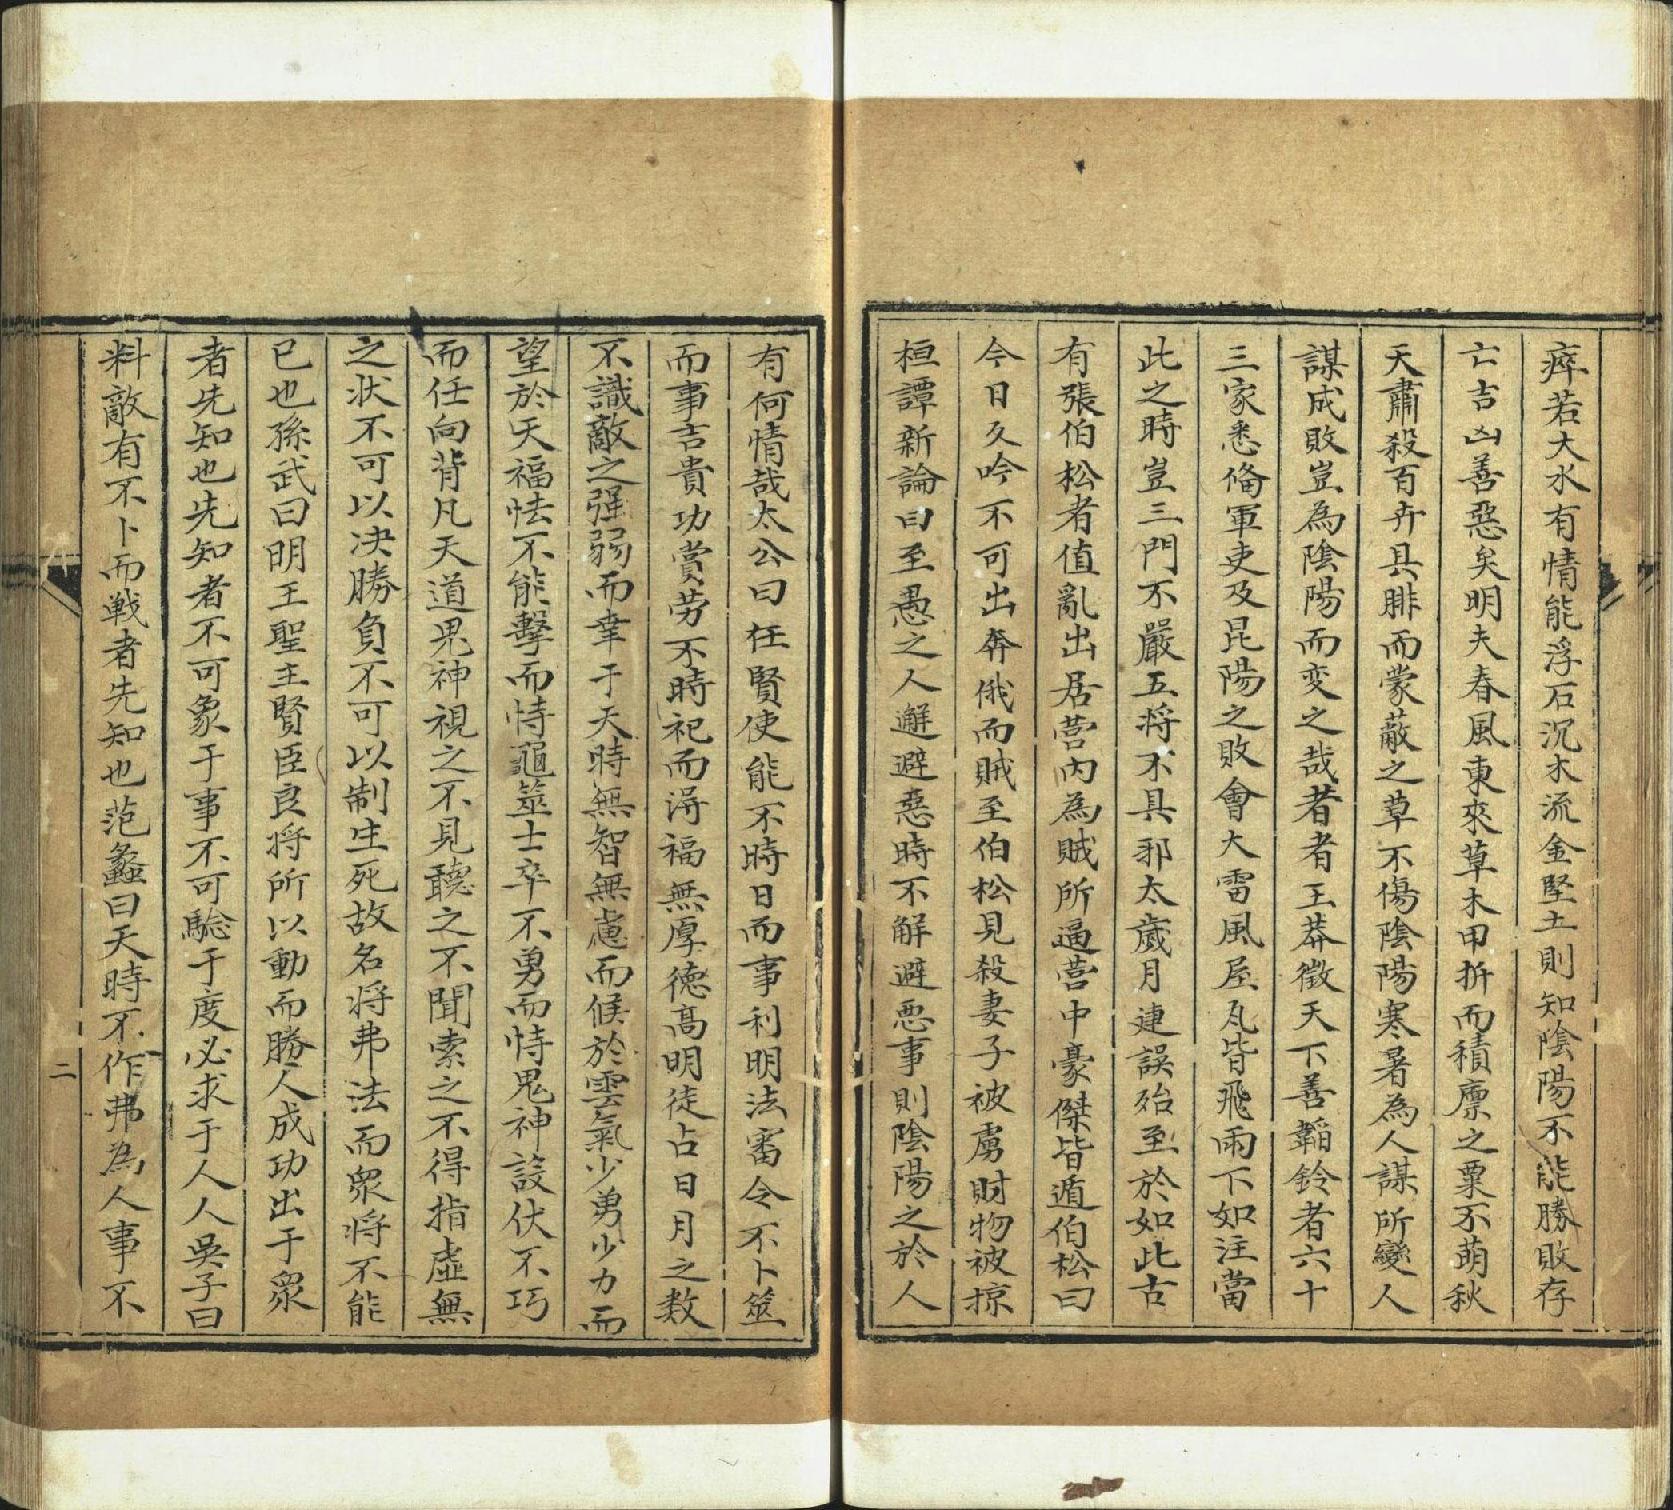 瘁若大水有情能浮石沉木流金堅土則知陰陽不能勝敗存
亡吉凶善惡矣明夫春風東來草木甲拆而積廪之粟不萌秋
天肅殺百卉具腓而蒙蔽之草不傷陰陽寒暑為人謀所變人
謀成敗豈為陰陽而变之哉昔者王莽徵天下善韜鈐者六十
三家悉俻軍吏及昆陽之敗會大雷風屋瓦皆飛雨下如注當
此之時豈三門不嚴五將不具邪太歲月建誤殆至於如此古
有張伯松者值亂出居營內為賊所逼營中豪傑皆遁伯松曰
今日久吟不可出奔俄而賊至伯松見殺妻子被虜財物被掠
桓譚新論曰至愚之人邂避惡時不解避惡事則陰陽之於人
有何情哉太公曰任賢使能不時日而事利明法審令不卜筮
而事吉貴功賞勞不時祀而得福無厚德髙明徒占日月之数
不識敵之强弱而幸于天時無智無慮而候於雲氣少勇少力而
望於天福怯不能擊而恃龜筮士卒不勇而恃鬼神設伏不巧
而任向背凡天道鬼神視之不見聽之不聞索之不得指虛無
之状不可以决勝負不可以制生死故名將弗法而衆將不能
已也孫武曰明王聖主賢臣良將所以動而勝人成功出于衆
者先知也先知者不可象于事不可驗于度必求于人人吳子曰
料敵有不卜而戰者先知也范蠡曰天時不作弗為人事不
二